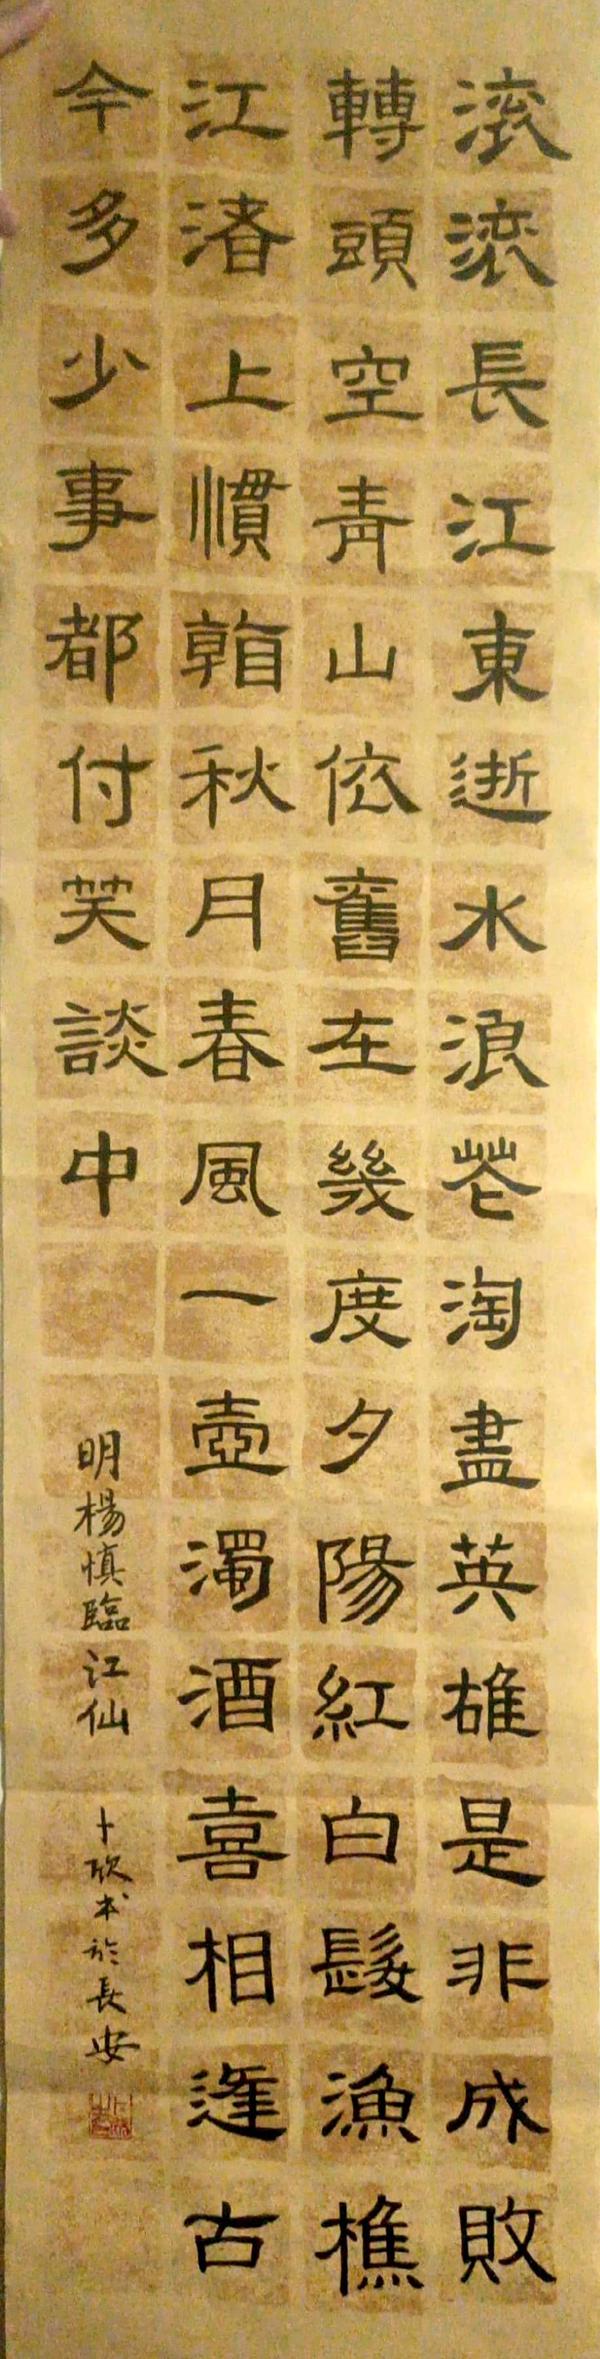 滚滚長江東逝水浪花淘盡英雄是非成敗
轉頭空青山依舊在幾度夕陽紅白髮漁樵
江渚上慣看秋月春風一壺濁酒喜相逢古
今多少事都付笑談中
明楊慎臨江仙
卜欣本於長安